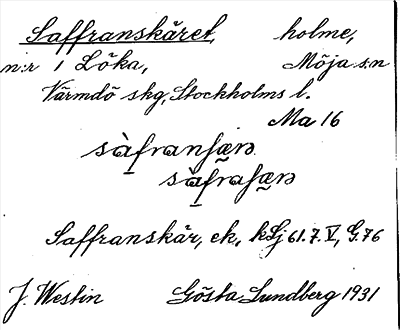 Saffranskäret, holme,
n:r 1 Löka, Möja s:n
Värmdö skg, Stockholms l.
Ma 16
Saffranskär, ek, kSj 61.7.V, G.76
J. Westin Gösta Lundberg 1931